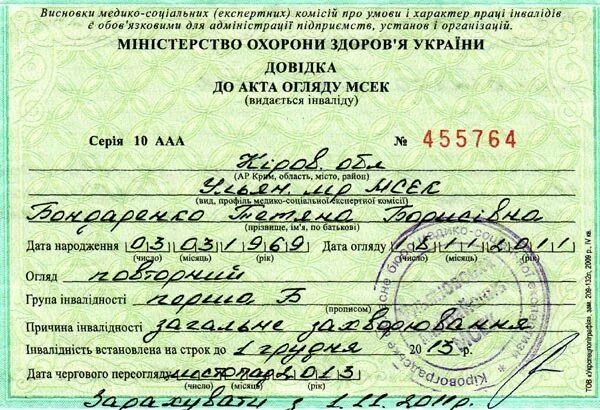 Висновки медико-соціальних (експертних) комісій про умови і характер праці інвалідів
є обов'язковими для адміністрації підприємств, установ і організацій.
МІНІСТЕРСТВО ОХОРОНИ ЗДОРОВ'Я УКРАЇНИ
ДОВІДКА
ДО АКТА ОГЛЯДУ МСЕК
(видається інваліду)
Серія 10 ААА № 455764
Кіров. обл
(АР Крим, область, місто, район)
Ульян. мр МСЕК
(вид, профіль медико-соціальної експертної комісії)
Бондаренко Тетяна Борисівна
(прізвище, ім'я, по батькові)
Дата народження 03 03 1969 Дата огляду 18 11 2011
(число) (місяць) (рік) (число) (місяць) (рік)
Огляд повторний
Група інвалідності перша Б
(прописом)
Причина інвалідності загальне захворювання
Інвалідність встановлена на строк до 1 грудня 2013 р.
Дата чергового перегляду листопад 2013
(число) (місяць) (рік)
Зарахувати з 1.11.2011р.
ТОВ «Укрспецполіграфія», зам. 209-132с, 2009 р., IV кв.